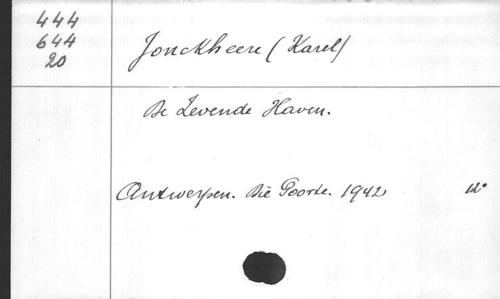 444
644
20
Jonckheere (Karel)
De Zevende Haven.
Antwerpen. Die Poorte. 1942
in-12°